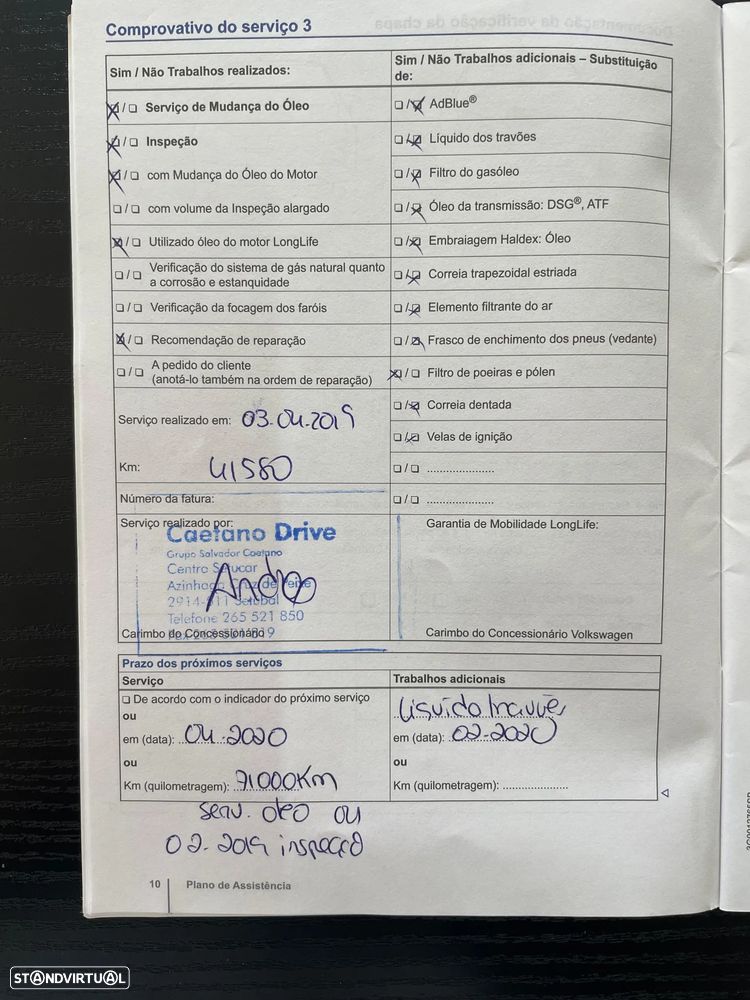 Comprovativo do serviço 3
Sim / Não Trabalhos realizados:
☒/☐ Serviço de Mudança do Óleo
☒/☐ Inspeção
☒/☐ com Mudança do Óleo do Motor
☐/☐ com volume da Inspeção alargado
☒/☐ Utilizado óleo do motor LongLife
☐/☐ Verificação do sistema de gás natural quanto
a corrosão e estanquidade
☐/☐ Verificação da focagem dos faróis
☒/☐ Recomendação de reparação
☐/☐ A pedido do cliente
(anotá-lo também na ordem de reparação)
Serviço realizado em: 03.04.2019
Km: 41580
Número da fatura:
Serviço realizado por:
Caetano Drive
Grupo Salvador Caetano
Centro
Azinhaga
Telefone 265 521 850
Carimbo do Concessionário
Sim / Não Trabalhos adicionais – Substituição
de:
☐/☒ AdBlue®
☐/☒ Líquido dos travões
☐/☒ Filtro do gasóleo
☐/☒ Óleo da transmissão: DSG®, ATF
☐/☒ Embraiagem Haldex: Óleo
☐/☒ Correia trapezoidal estriada
☐/☒ Elemento filtrante do ar
☐/☒ Frasco de enchimento dos pneus (vedante)
☒/☐ Filtro de poeiras e pólen
☐/☒ Correia dentada
☐/☒ Velas de ignição
☐/☐ .....................
☐/☐ .....................
Garantia de Mobilidade LongLife:
Carimbo do Concessionário Volkswagen
Prazo dos próximos serviços
Serviço
☐ De acordo com o indicador do próximo serviço
ou
em (data): 04.2020
ou
Km (quilometragem): 71000Km
serv. oleo ou
02.2019 inspeção
Trabalhos adicionais
em (data): 02-2020
ou
Km (quilometragem): .....................
10 Plano de Assistência
STANDVIRTUAL